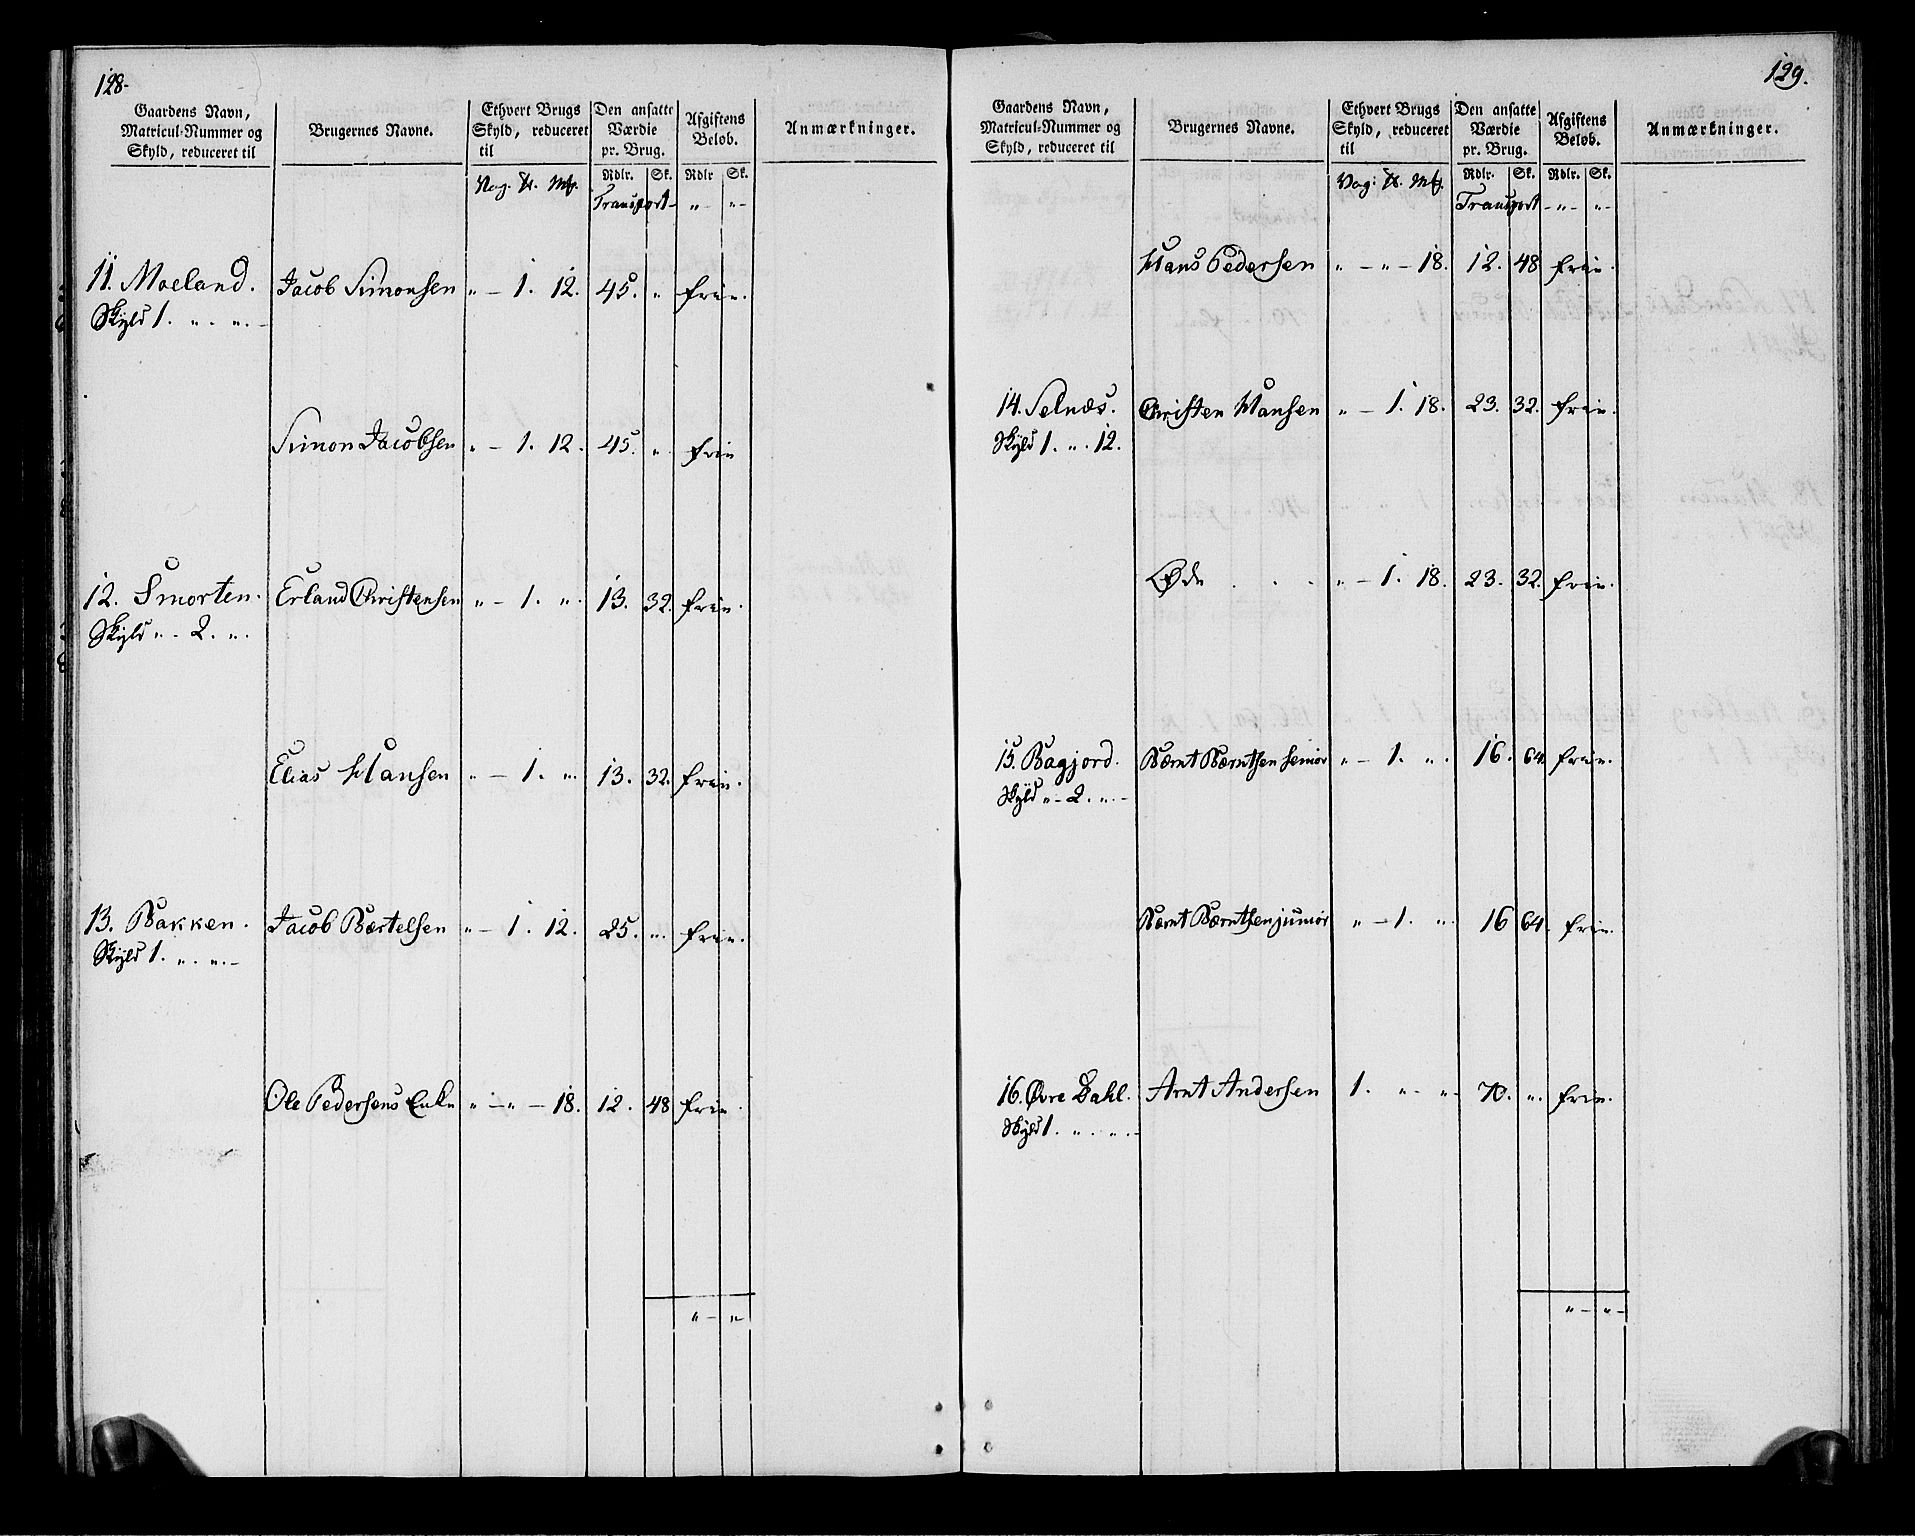 128.
Gaardens Navn, Matricul-Nummer og Skyld, reduceret til
Brugernes Navne.
Ethvert Brugs Skyld, reduceret til
Den ansatte Værdie pr. Brug.
Afgiftens Beløb.
Anmærkninger.
Vog. Rdlr. Sk. Rdlr Sk.
Transport - " - " -
11. Moeland. Jacob Simonsen " - 1. 12. 45. " frie.
Skyld 1. " . " . -
Simon Jacobsen " - 1. 12. 45. " frie
12. Smorten. Erland Christensen " - 1. " . 13. 32. frie.
Skyld " - 2. " .
Elias Hansen " - 1. " . 13. 32. frie.
13. Bakken. Jacob Bertelsen " - 1. 12. 25. " . frie.
Skyld 1. " . " . -
Ole Pedersens Enke " - " - 18. 12. 48 frie.
" - " -
129.
Gaardens Navn, Matricul-Nummer og Skyld, reduceret til
Brugernes Navne.
Ethvert Brugs Skyld, reduceret til
Den ansatte Værdie pr. Brug.
Afgiftens Beløb.
Anmærkninger.
Vog: Rdlr. Sk. Rdlr. Sk.
Transport - " - " -
Hans Pedersen " - " - 18. 12. 48 frie.
14. Selnæs. Christen Hansen " - 1. 18. 23. 32. frie.
Skyld 1. " . 12.
Øde . . . " - 1. 18. 23. 32. frie.
15. Bagjord. Bernt Berntsen senior " - 1. " . 16. 64. frie.
Skyld " - 2. " . -
Bernt Berntsen junior " - 1. " . 16 64. frie.
16. Øvre Dahl. Arnt Andersen 1. " - " - 70. " . frie.
Skyld 1. " . " . -
" - " -